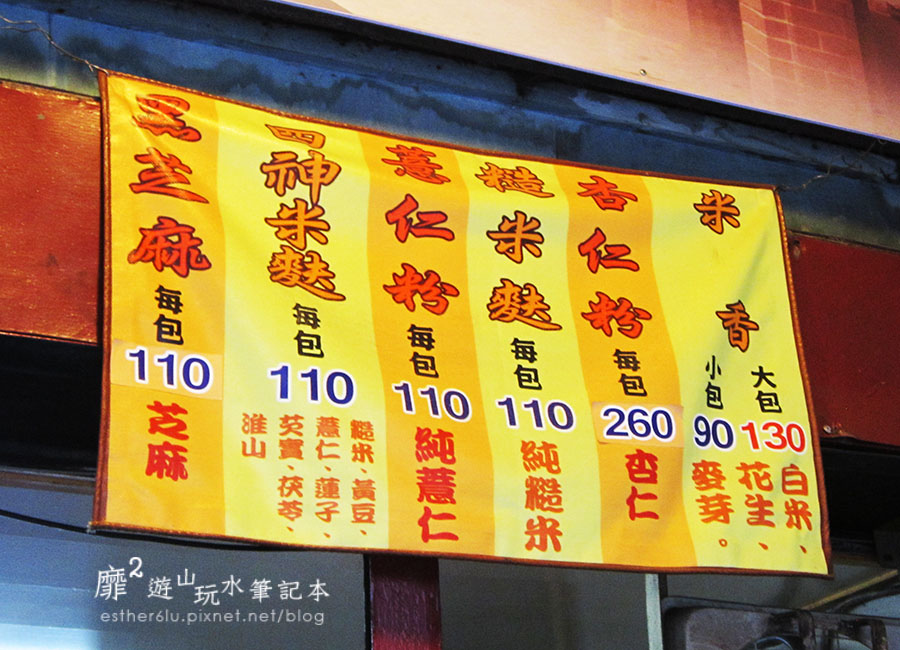 黑芝麻
每包
110
芝麻
四神米麩
每包
110
糙米、黃豆、
薏仁、蓮子、
芡實、茯苓、
淮山
薏仁粉
每包
110
純薏仁
糙米麩
每包
110
純糙米
杏仁粉
每包
260
杏仁
米香
大包
130
小包
90
白米、
花生、
麥芽。
靡2遊山玩水筆記本
esther61u.pixnet.net/blog